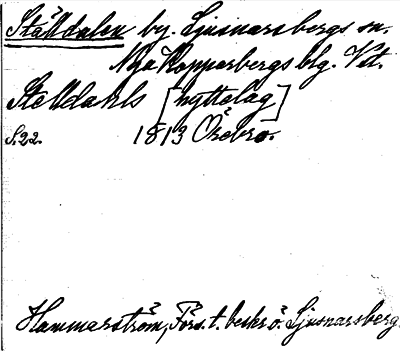 Ställdalen by. Ljusnarsbergs sn.
Nya Kopparbergs blg. Vstm.
Stelldahls [nyttelag]
S.22. 1813 Örebro.
Hammarström, Förs. t. beskr. ö. Ljusnarsberg